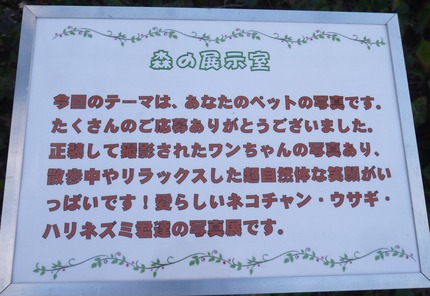 森の展示室
今回のテーマは、あなたのペットの写真です。
たくさんのご応募ありがとうございました。
正装して撮影されたワンちゃんの写真あり、
散歩中やリラックスした超自然体な笑顔がい
っぱいです！愛らしいネコチャン・ウサギ・
ハリネズミ君達の写真展です。